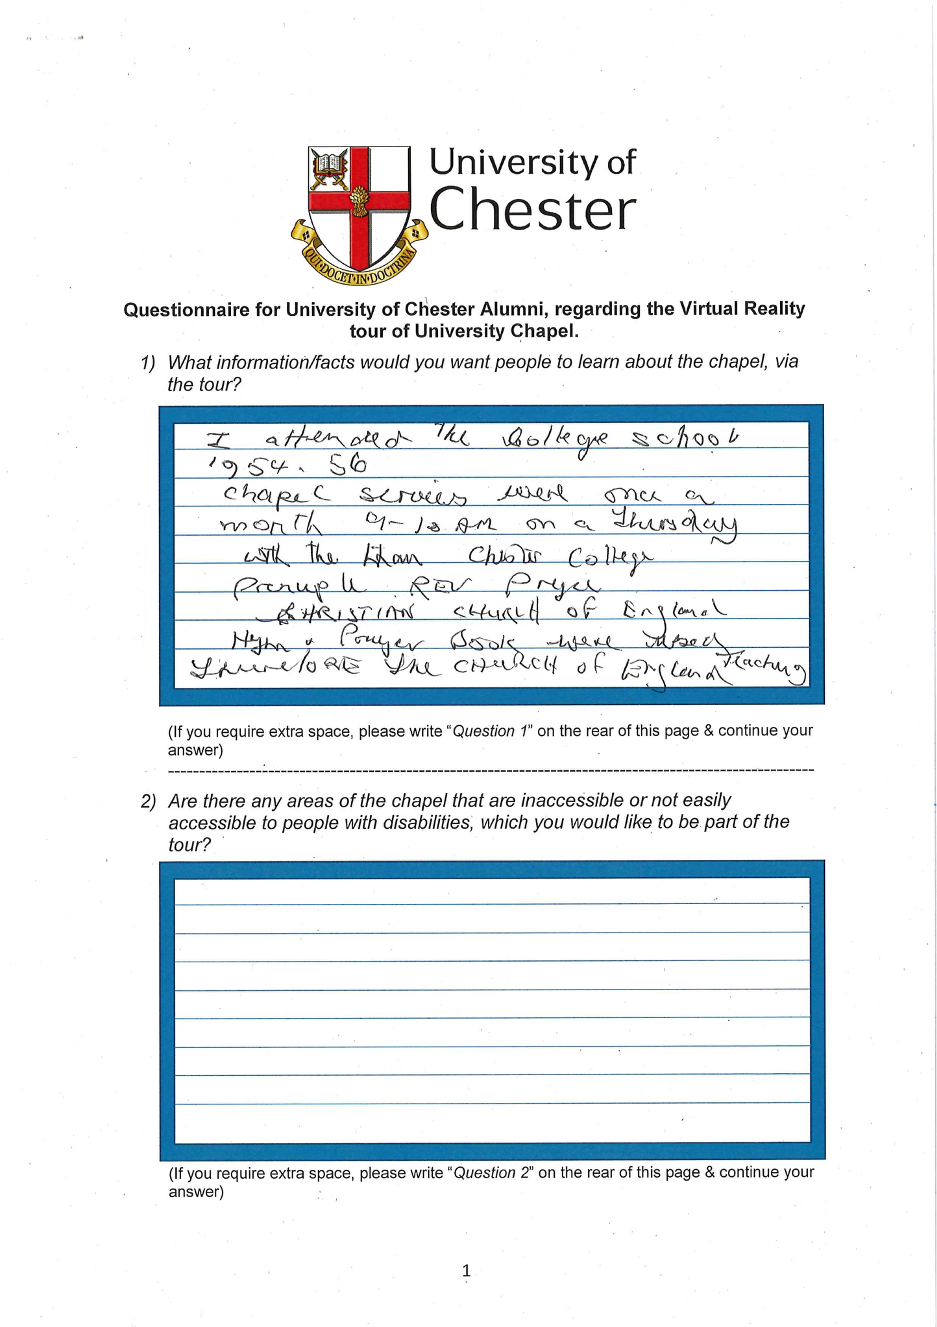 University of
Chester
QUI·DOCET·IN·DOCTRINA
Questionnaire for University of Chester Alumni, regarding the Virtual Reality
tour of University Chapel.
1) What information/facts would you want people to learn about the chapel, via
the tour?
I attended The College school
1954. 56
chapel services were once a
month 9-10 AM on a Thursday
with the Chester College
REV
CHRISTIAN CHURCH OF England
Hymn & Prayer Book were used
Therefore The CHURCH OF England Teaching
(If you require extra space, please write "Question 1" on the rear of this page & continue your
answer)
2) Are there any areas of the chapel that are inaccessible or not easily
accessible to people with disabilities, which you would like to be part of the
tour?
(If you require extra space, please write "Question 2" on the rear of this page & continue your
answer)
1